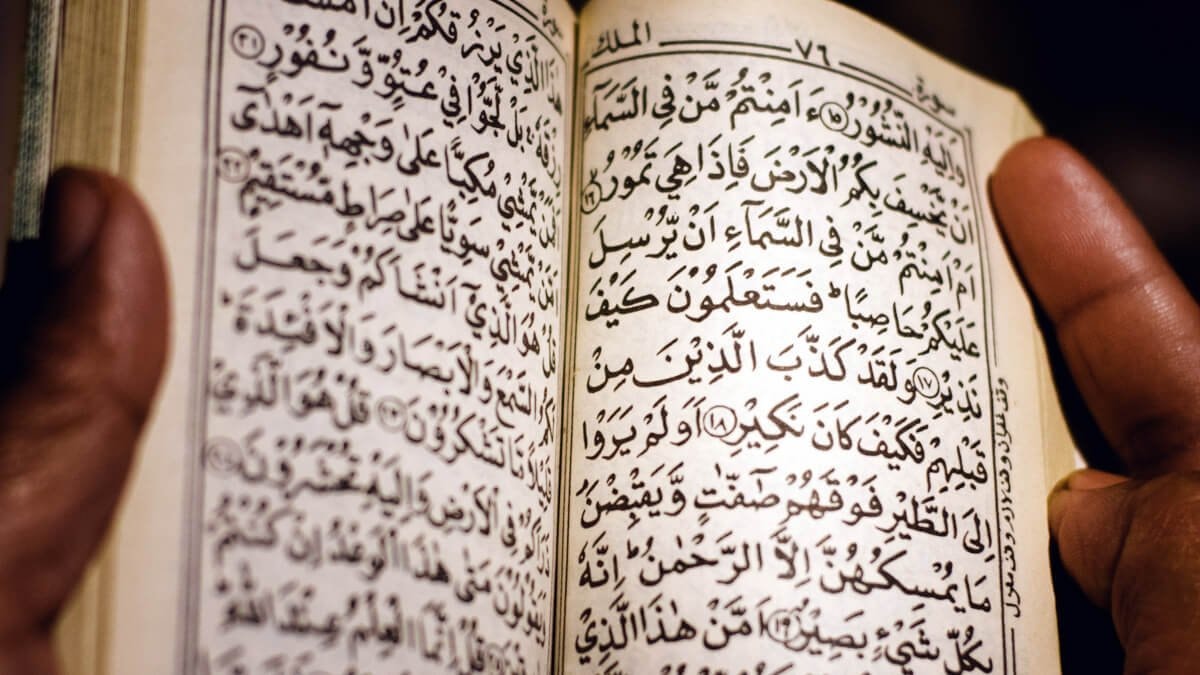 سورة ٧٦ الملك
وَاِلَيْهِ النُّشُوْرُ ١٥ ءَاَمِنْتُمْ مَّنْ فِى السَّمَآءِ
اَنْ يَّخْسِفَ بِكُمُ الْاَرْضَ فَاِذَا هِيَ تَمُوْرُ ١٦
اَمْ اَمِنْتُمْ مَّنْ فِى السَّمَآءِ اَنْ يُّرْسِلَ
عَلَيْكُمْ حَاصِبًا ؕ فَسَتَعْلَمُوْنَ كَيْفَ
نَذِيْرِ ١٧ وَلَقَدْ كَذَّبَ الَّذِيْنَ مِنْ
قَبْلِهِمْ فَكَيْفَ كَانَ نَكِيْرِ ١٨ اَوَلَمْ يَرَوْا
اِلَى الطَّيْرِ فَوْقَهُمْ صٰٓفّٰتٍ وَّيَقْبِضْنَ ؕ
مَا يُمْسِكُهُنَّ اِلَّا الرَّحْمٰنُ ؕ اِنَّهٗ
بِكُلِّ شَيْءٍ بَصِيْرٌ ١٩ اَمَّنْ هٰذَا الَّذِيْ
هٰذَا الَّذِيْ يَرْزُقُكُمْ اِنْ اَمْسَكَ
رِزْقَهٗ ۚ بَلْ لَّجُّوْا فِيْ عُتُوٍّ وَّنُفُوْرٍ ٢١
اَفَمَنْ يَّمْشِيْ مُكِبًّا عَلٰى وَجْهِهٖٓ اَهْدٰٓى
اَمَّنْ يَّمْشِيْ سَوِيًّا عَلٰى صِرَاطٍ مُّسْتَقِيْمٍ ٢٢
قُلْ هُوَ الَّذِيْٓ اَنْشَاَكُمْ وَجَعَلَ
لَكُمُ السَّمْعَ وَالْاَبْصَارَ وَالْاَفْـِٕدَةَ ؕ
قَلِيْلًا مَّا تَشْكُرُوْنَ ٢٣ قُلْ هُوَ الَّذِيْ
ذَرَاَكُمْ فِى الْاَرْضِ وَاِلَيْهِ تُحْشَرُوْنَ
وَيَقُوْلُوْنَ مَتٰى هٰذَا الْوَعْدُ اِنْ كُنْتُمْ
قُلْ اِنَّمَا الْعِلْمُ عِنْدَ اللّٰهِ